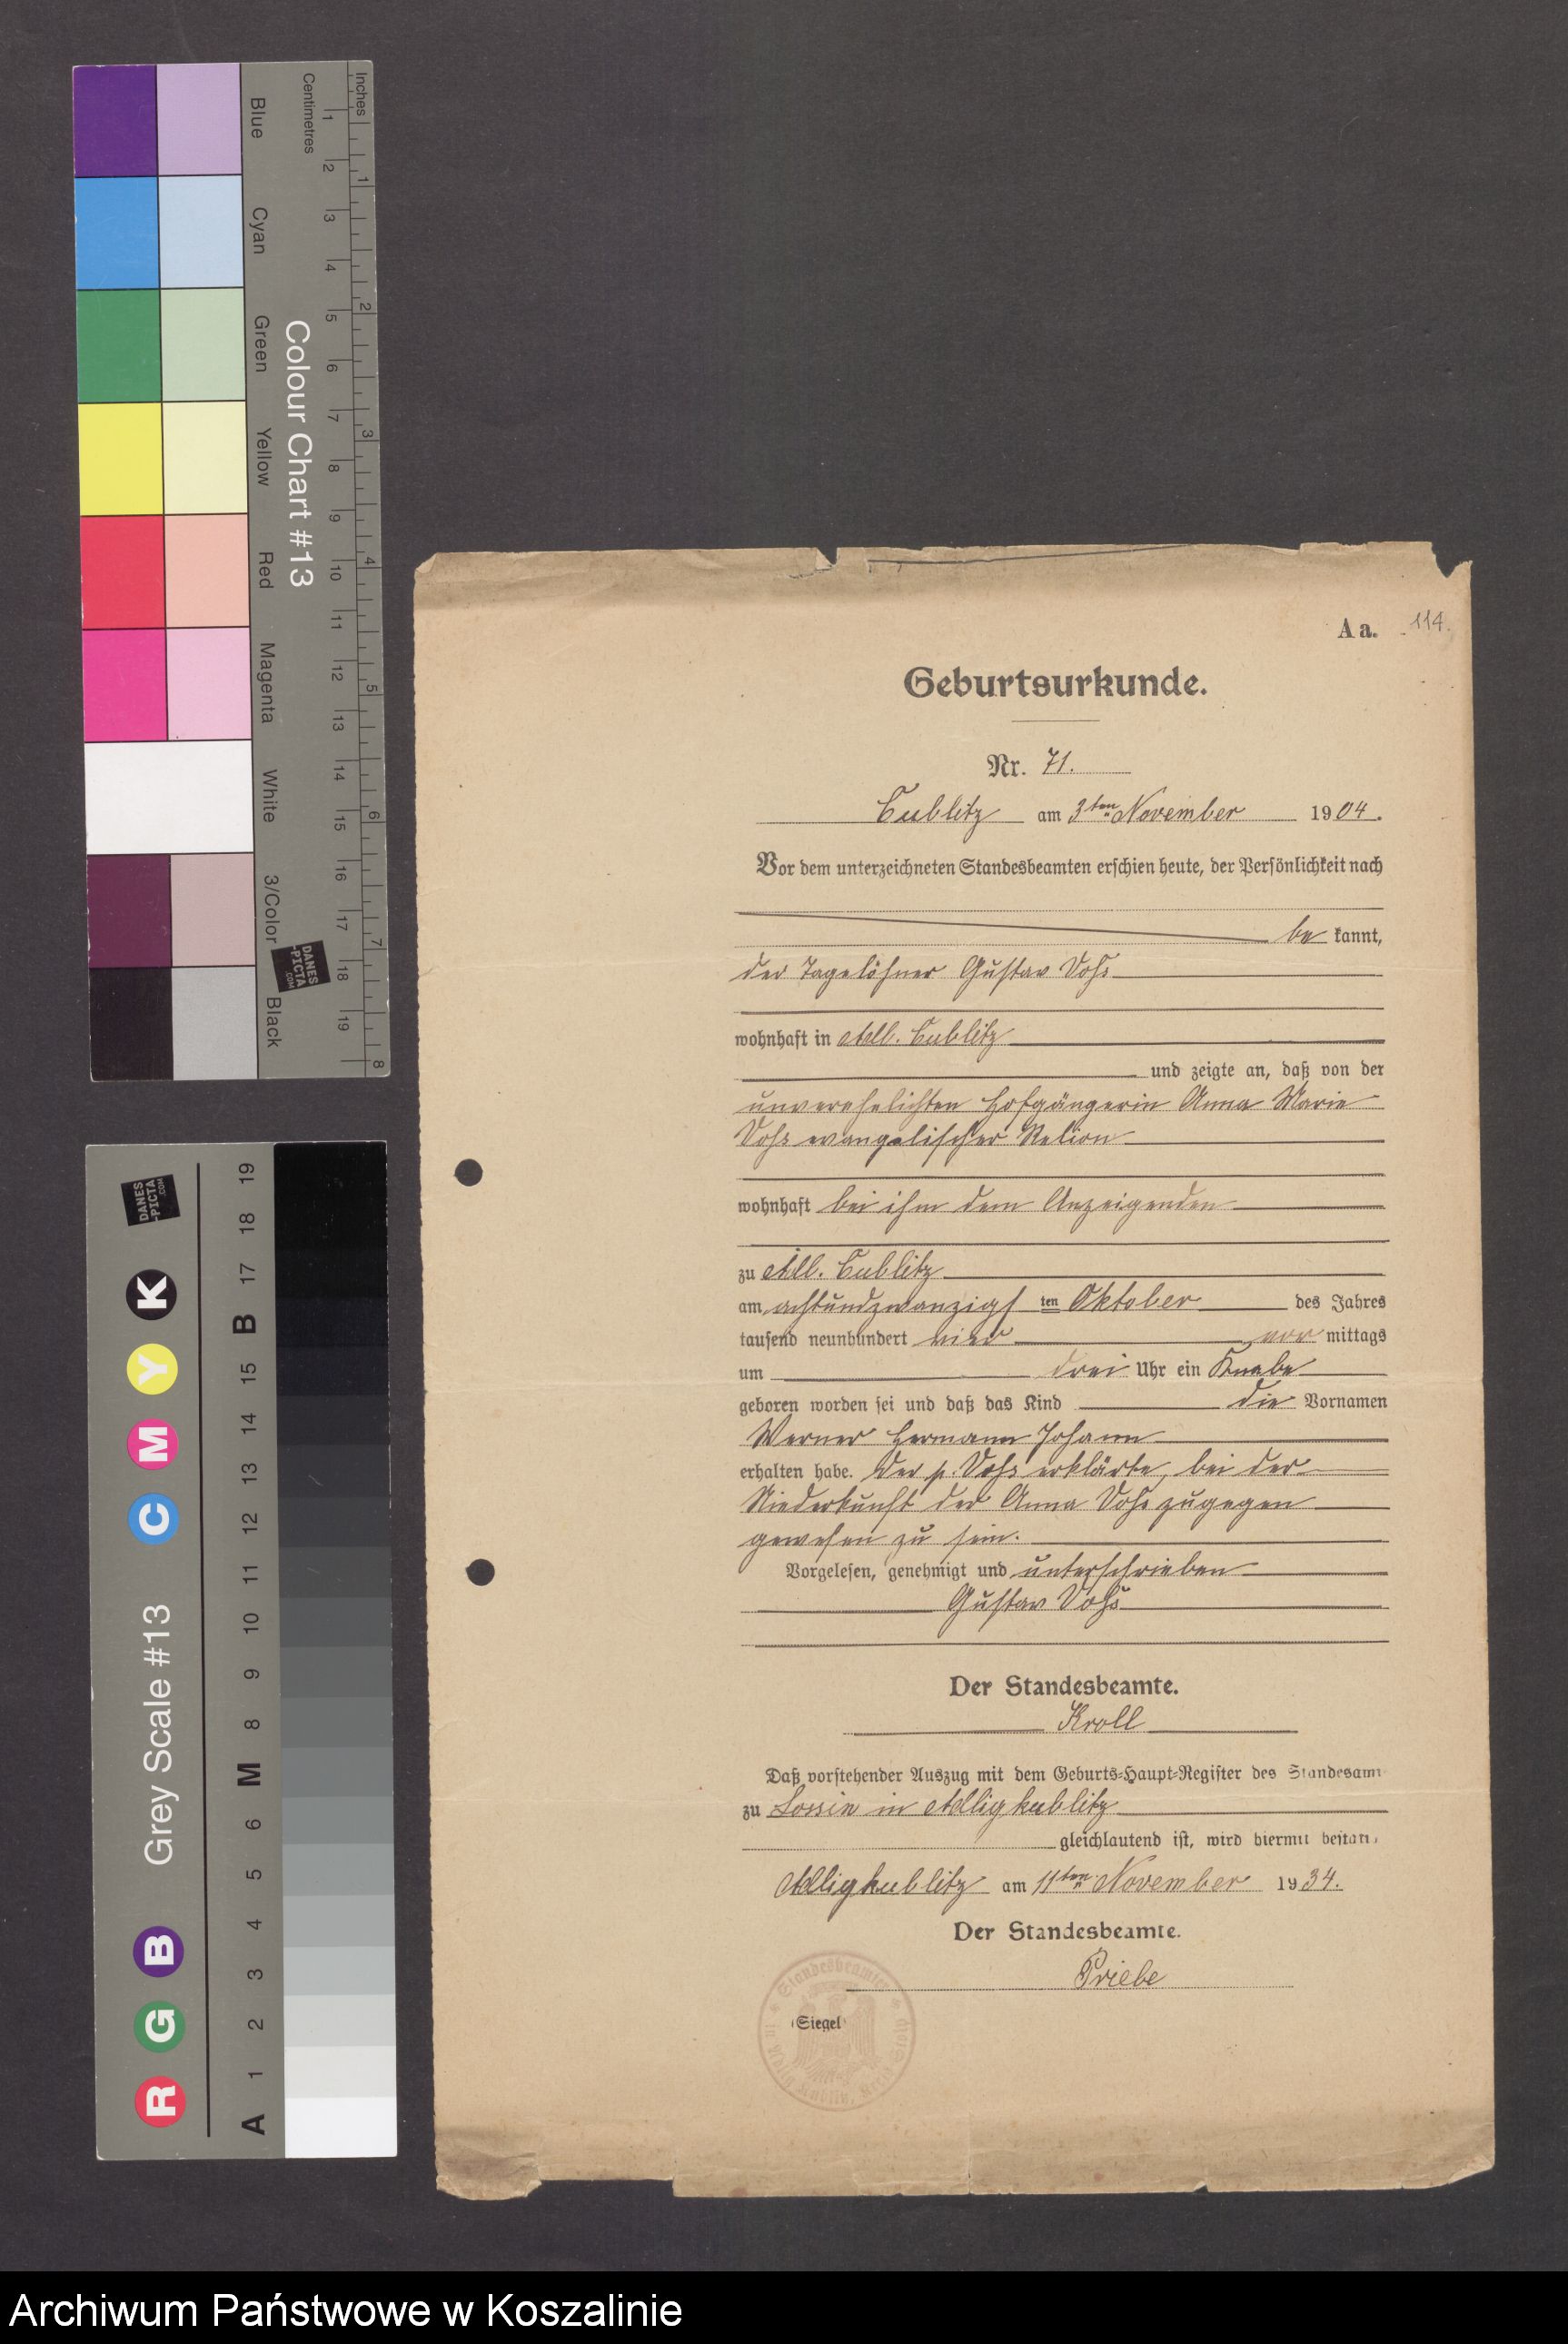 Inches
Centimetres
1 2 3 4 5 6 7 8
1 2 3 4 5 6 7 8 9 10 11 12 13 14 15 16 17 18 19
Colour Chart #13
Blue
Cyan
Green
Yellow
Red
Magenta
White
3/Color
Black
DANES
-PICTA
.COM
Grey Scale #13
R G B C M Y K
A 1 2 3 4 5 6 M 8 9 10 11 12 13 14 15 B 17 18 19
DANES
-PICTA
.COM
A a. 114.
Geburtsurkunde.
Nr. 71.
Cublitz am 3ten November 1904.
Vor dem unterzeichneten Standesbeamten erschien heute, der Persönlichkeit nach
be kannt,
der Tagelöhner Gustav Vohs
wohnhaft in Adl. Cublitz
und zeigte an, daß von der
unverehelichten Hofgängerin Anna Marie
Vohs evangelischer Relion
wohnhaft bei ihm dem Anzeigenden
zu Adl. Cublitz
am achtundzwanzigs ten Oktober des Jahres
tausend neunhundert vier vor mittags
um drei Uhr ein Knabe
geboren worden sei und daß das Kind die Vornamen
Werner Hermann Johann
erhalten habe. Der p. Vohs erklärte, bei der
Niederkunft der Anna Vohs zugegen
gewesen zu sein.
Vorgelesen, genehmigt und unterschrieben
Gustav Vohs
Der Standesbeamte.
Kroll
Daß vorstehender Auszug mit dem Geburts-Haupt-Register des Standesamt
zu Lossin in Adlig kublitz
gleichlautend ist, wird hiermit bestäti
Adligkublitz am 11ten November 1934.
Der Standesbeamte.
Priebe
(Siegel)
Archiwum Państwowe w Koszalinie